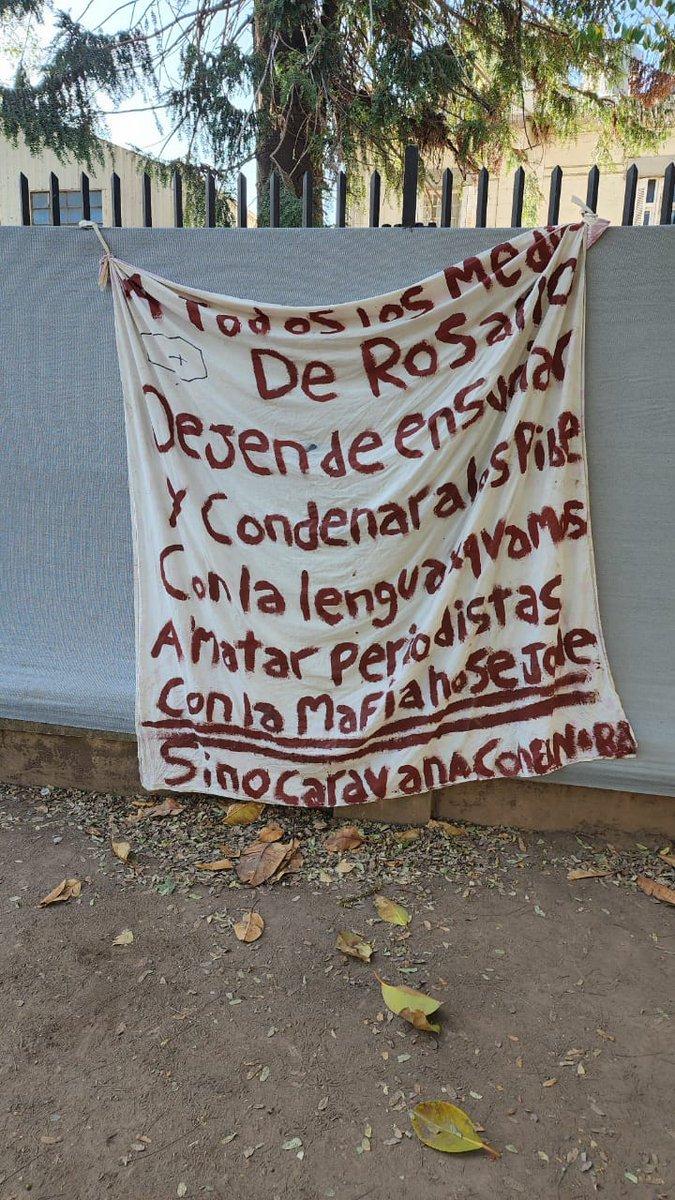 A Todos los Medi
De Rosario
Dejen de ensuciar
Y Condenar a los Pibe
Con la lengua xq vamos
A Matar Periodistas
Con la Mafia no se Jde
Si no Caravana Con